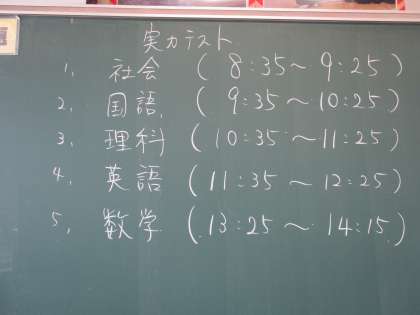 実力テスト
1. 社会 (8:35～9:25)
2. 国語 (9:35～10:25)
3. 理科 (10:35～11:25)
4. 英語 (11:35～12:25)
5. 数学 (13:25～14:15)